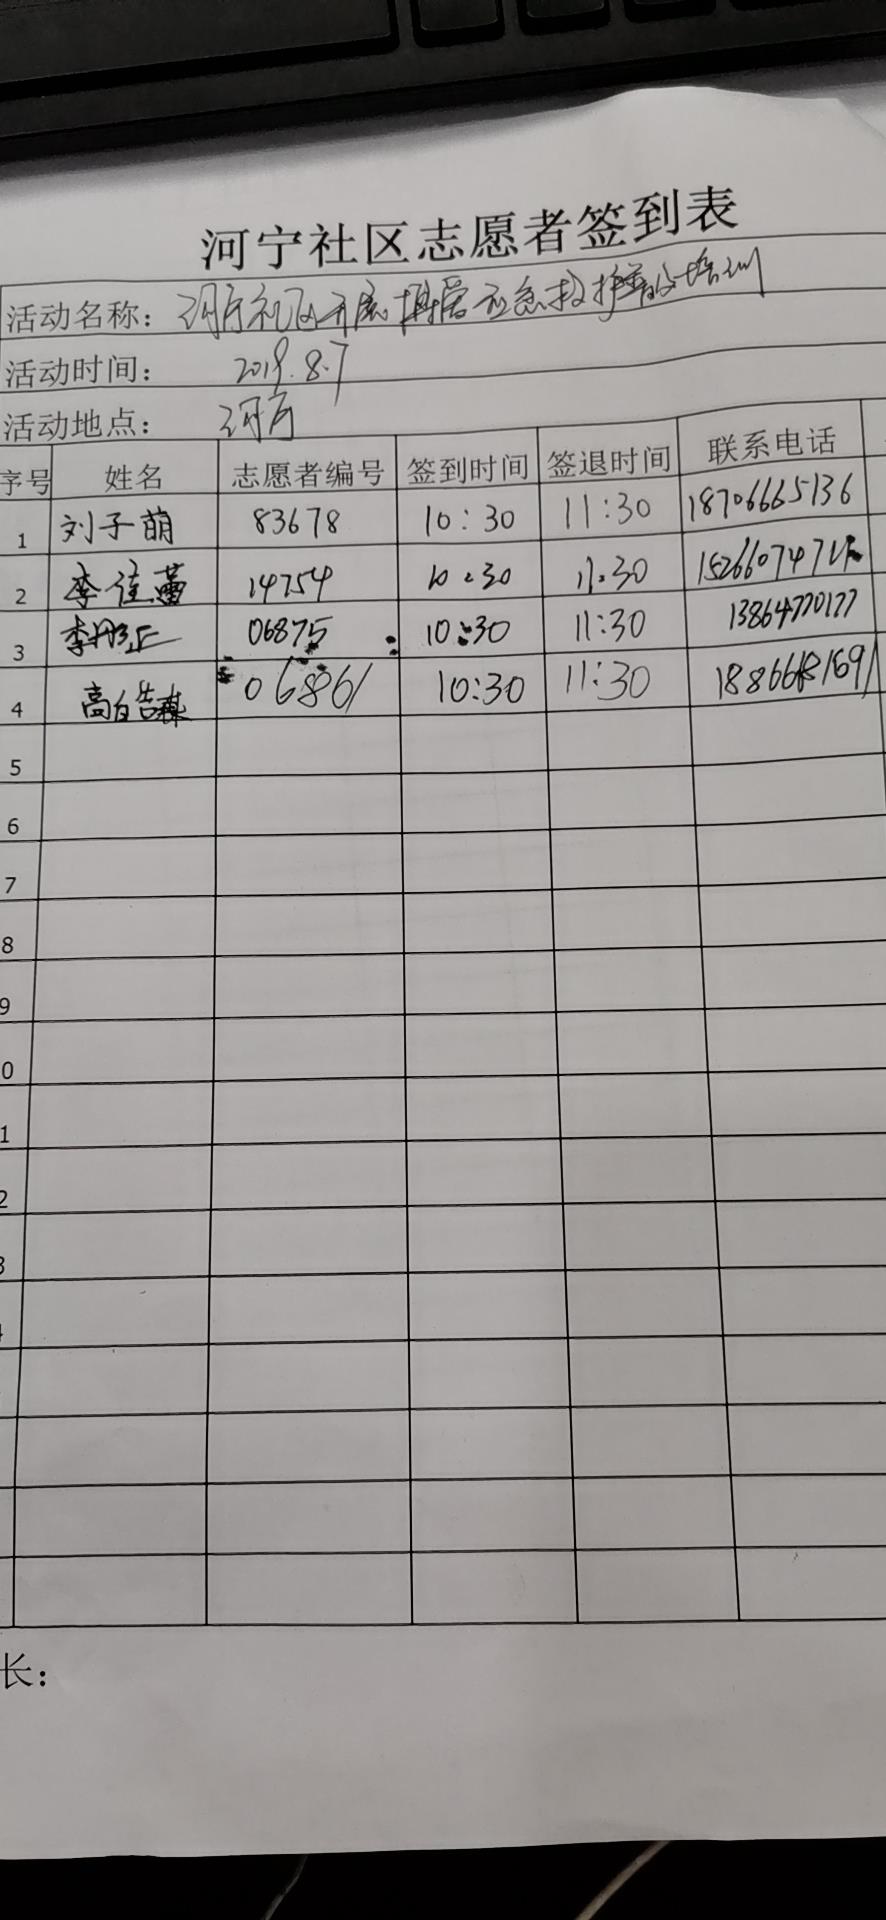 河宁社区志愿者签到表
活动名称：河宁社区开展 应急救护 培训
活动时间：2019.8.7
活动地点：河宁
序号 姓名 志愿者编号 签到时间 签退时间 联系电话
1 刘子萌 83678 10:30 11:30 18706665136
2 李佳蕾 14754 10:30 11:30
3 李 06875 10:30 11:30 13864770177
4 高 06861 10:30 11:30
5
6
7
8
9
0
1
2
3
4
长：